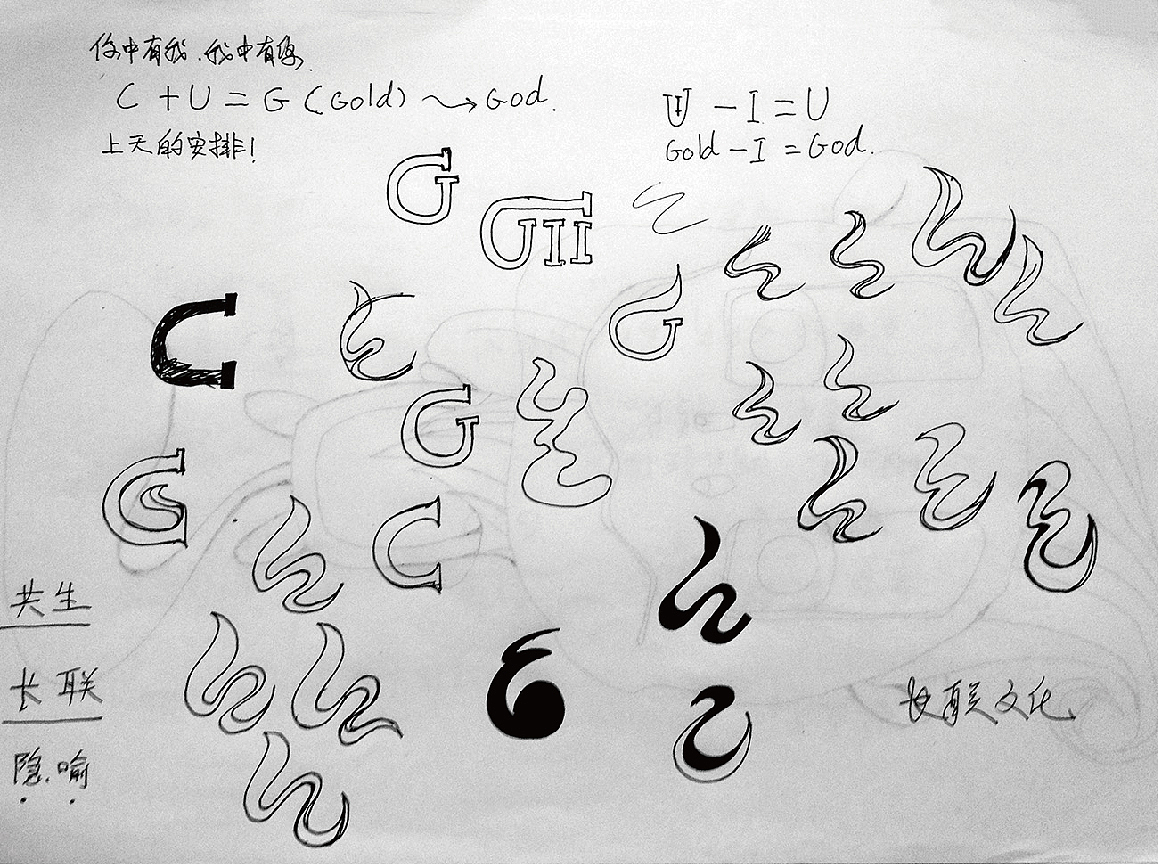 你中有我.我中有你.
C + U = G (Gold) ⤳ God.
上天的安排!
U - I = U
Gold - I = God.
G
GII
G
C
G
G
C
共生
长联
隐.喻
长联文化